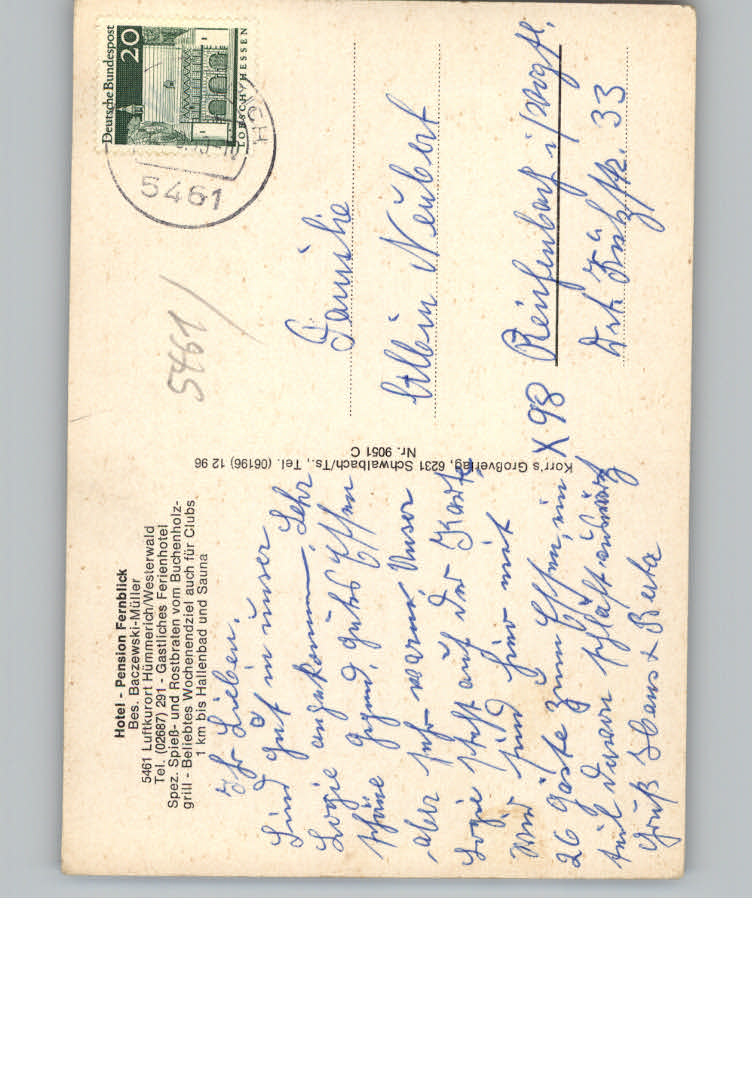 Hotel - Pension Fernblick
Bes. Baczewski-Müller
5461 Luftkurort Hümmerich/Westerwald
Tel. (02687) 291 - Gastliches Ferienhotel
Spez. Spieß- und Rostbraten vom Buchenholz-
grill - Beliebtes Wochenendziel auch für Clubs
1 km bis Hallenbad und Sauna
Ihr Lieben.
Sind gut in unser
Logie angekommen, Sehr
schöne Gegend, gutes Essen
aber sehr warm Unser
Logie steht auf der Karte,
Wir sind hier mit
26 Gäste zum Essen, ein
teil davon schläft auswärts
Gruß Hans + Berta
Korr's Großverlag, 6231 Schwalbach/Ts., Tel. (06196) 12 96
Nr. 9051 C
Deutsche Bundespost
20
LORSCH/HESSEN
5461
5461
Familie
Albin Neubert
X 98 Reichenbach i/Vogtl.
Str. 33